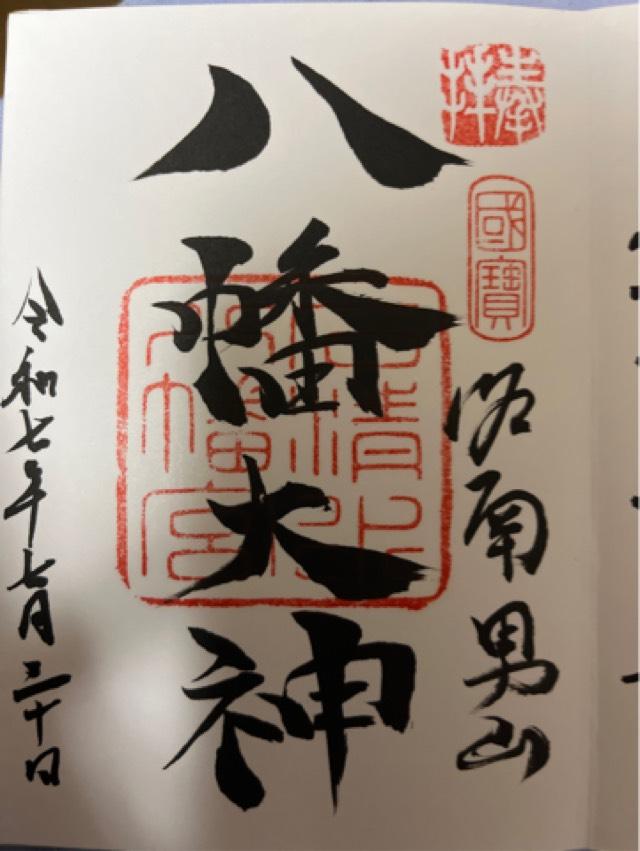 奉拝
國寶
洛南男山
八幡大神
石清水八幡宮
令和七年七月三十日